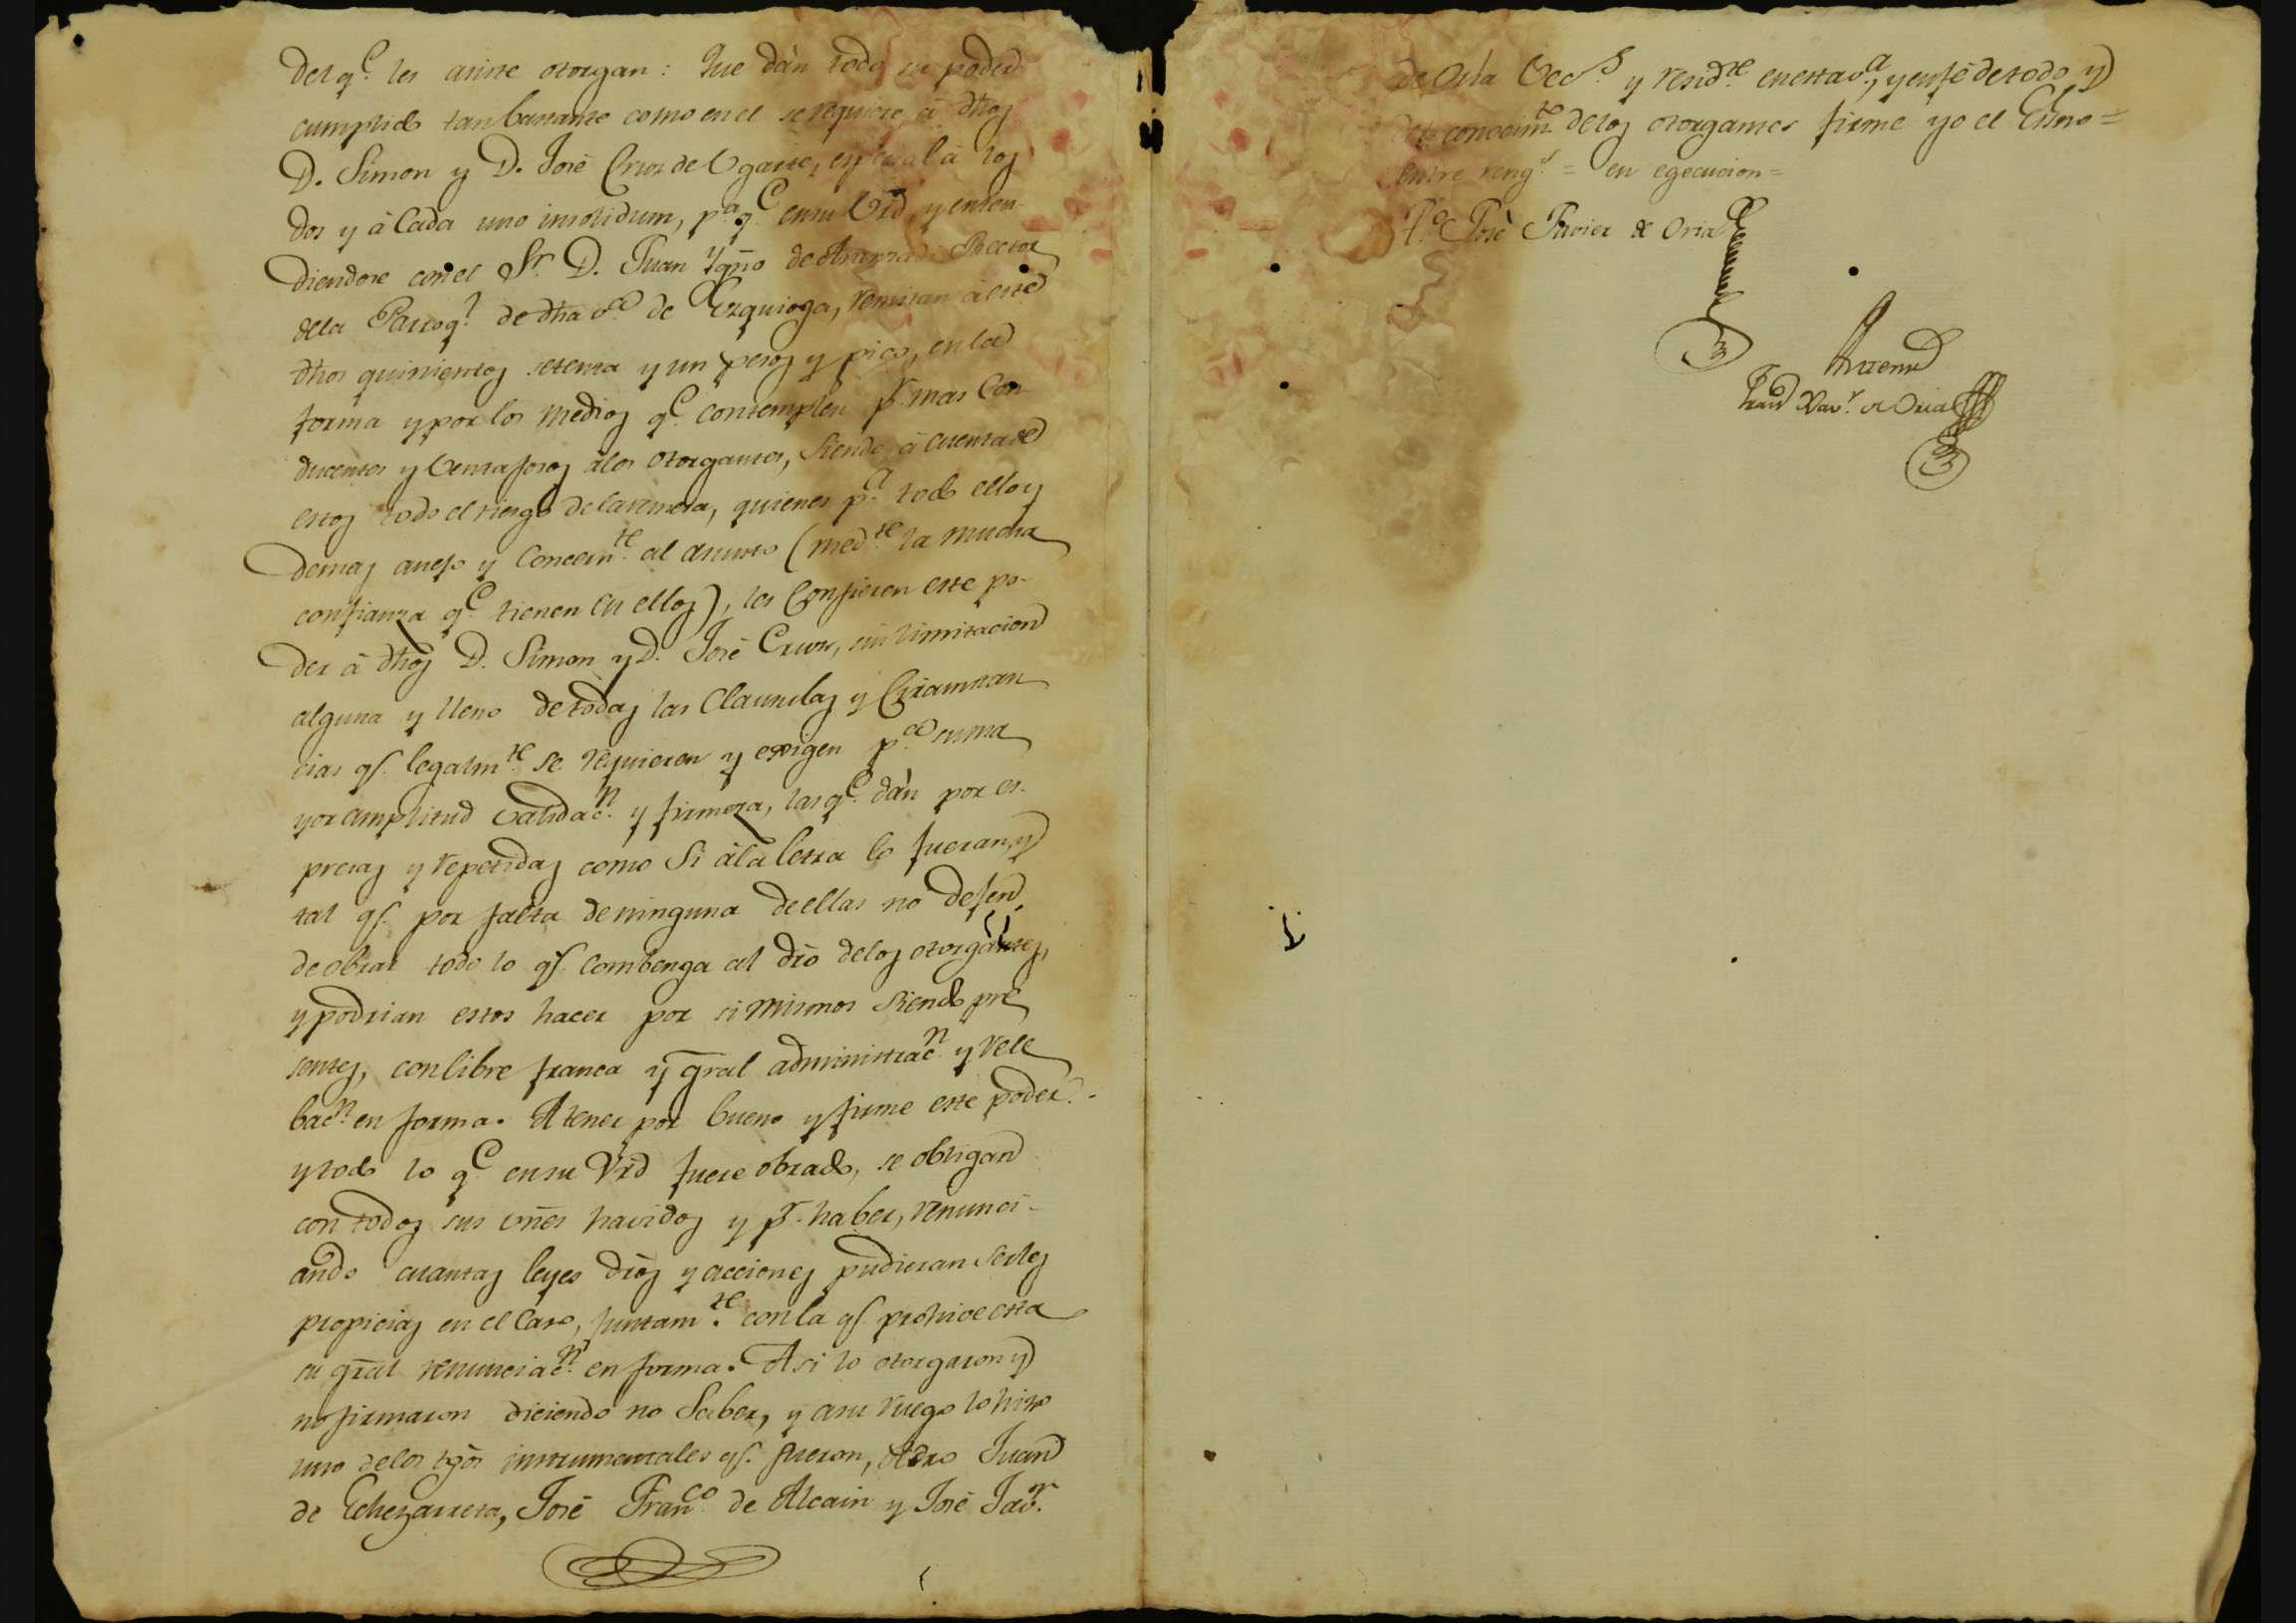 del q.e les asiste otorgan: Que dàn todo su poder
cumplido tan bastante como en el se requiere, à dhos
D. Simon y D. Josè Cruz de Ugarte, especial à los
dos y à Cada uno insolidum, p.a q.e en su Vrd, y enten-
diendose con el S.r D. Juan Ygño de Rector
de la Parroq.l de dha v.a de Ezquioga, remitan à este
dhos quinientos setenta y un pesos y pico, en la
forma y por los medios q.e contemplen p.r mas Con
ducentes y Ventajosos à los otorgantes, siendo à cuenta de
estos todo el riesgo de la remesa, quienes p.a todo ello y
demas anejo y Concern.te al asunto (med.te la mucha
confianza q.e tienen en ellos), les Confieren este po-
der à dhos D. Simon y D. Josè Cruz, sin limitacion
alguna y lleno de todas las Clausulas y Circunstan
cias q.e legalm.te se requieren y exigen p.a su ma
yor amplitud validac.n y firmeza, las q.e dàn por es-
presas y repetidas como si à la letra lo fueran, y
tal q.e por falta de ninguna de ellas no dejen
de obrar todo lo q.e combenga al dro de los otorgantes,
y podrian estos hacer por si mismos siendo pre
sentes, con libre franca y gral administrac.n y rele
bac.n en forma. A tener por bueno y firme este poder
y todo lo q.e en su Vrd fuere obrado, se obligan
con todos sus vnes havidos y p.r haber, renunci-
ando cuantas leyes dros y acciones pudieran serles
propicias en el Caso, juntam.te con la q.e prohive esta
su gral renunciac.n en forma. Asi lo otorgaron y
no firmaron diciendo no Saber, y a su ruego lo hizo
uno de los tgos instrumentales q.e fueron, Juan
de Echezarreta, Josè Fran.co de Alcain y Josè Jav.r
de Oria Vec.s y resid.te en esta v.a, y en fè de todo y
del conocim.to de los otorgantes firme yo el Esno =
Entre reng.s = en egecucion =
T.o Josè Javier de Oria
Antemi
Xav.r de Oria